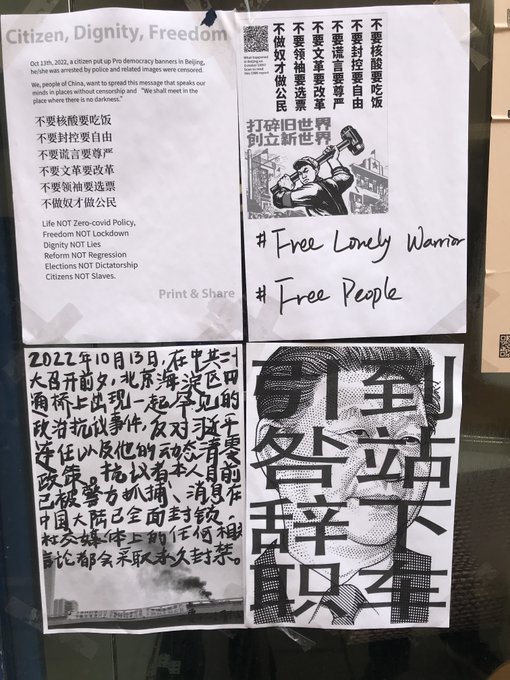 Citizen, Dignity, Freedom
Oct 13th, 2022, a citizen put up Pro democracy banners in Beijing,
he/she was arrested by police and related images were censored.
We, people of China, want to spread this message that speaks our
minds in places without censorship and "We shall meet in the
place where there is no darkness."
不要核酸要吃饭
不要封控要自由
不要谎言要尊严
不要文革要改革
不要领袖要选票
不做奴才做公民
Life NOT Zero-covid Policy,
Freedom NOT Lockdown
Dignity NOT Lies
Reform NOT Regression
Elections NOT Dictatorship
Citizens NOT Slaves.
Print & Share
What happened
in Beijing on
不要核酸要吃饭
不要封控要自由
不要谎言要尊严
不要文革要改革
不要领袖要选票
不做奴才做公民
打碎旧世界
创立新世界
# Free Lonely Warrior
# Free People
2022年10月13日,在中共二十
大召开前夕,北京海淀区四
通桥上出现一起罕见的
政治抗议事件,反对习近平
连任以及他的动态清零
政策。抗议者本人目前
已被警方抓捕、消息在
中国大陆已全面封锁。
社交媒体上的任何相关
言论都会采取永久封禁。
到站下车
引咎辞职